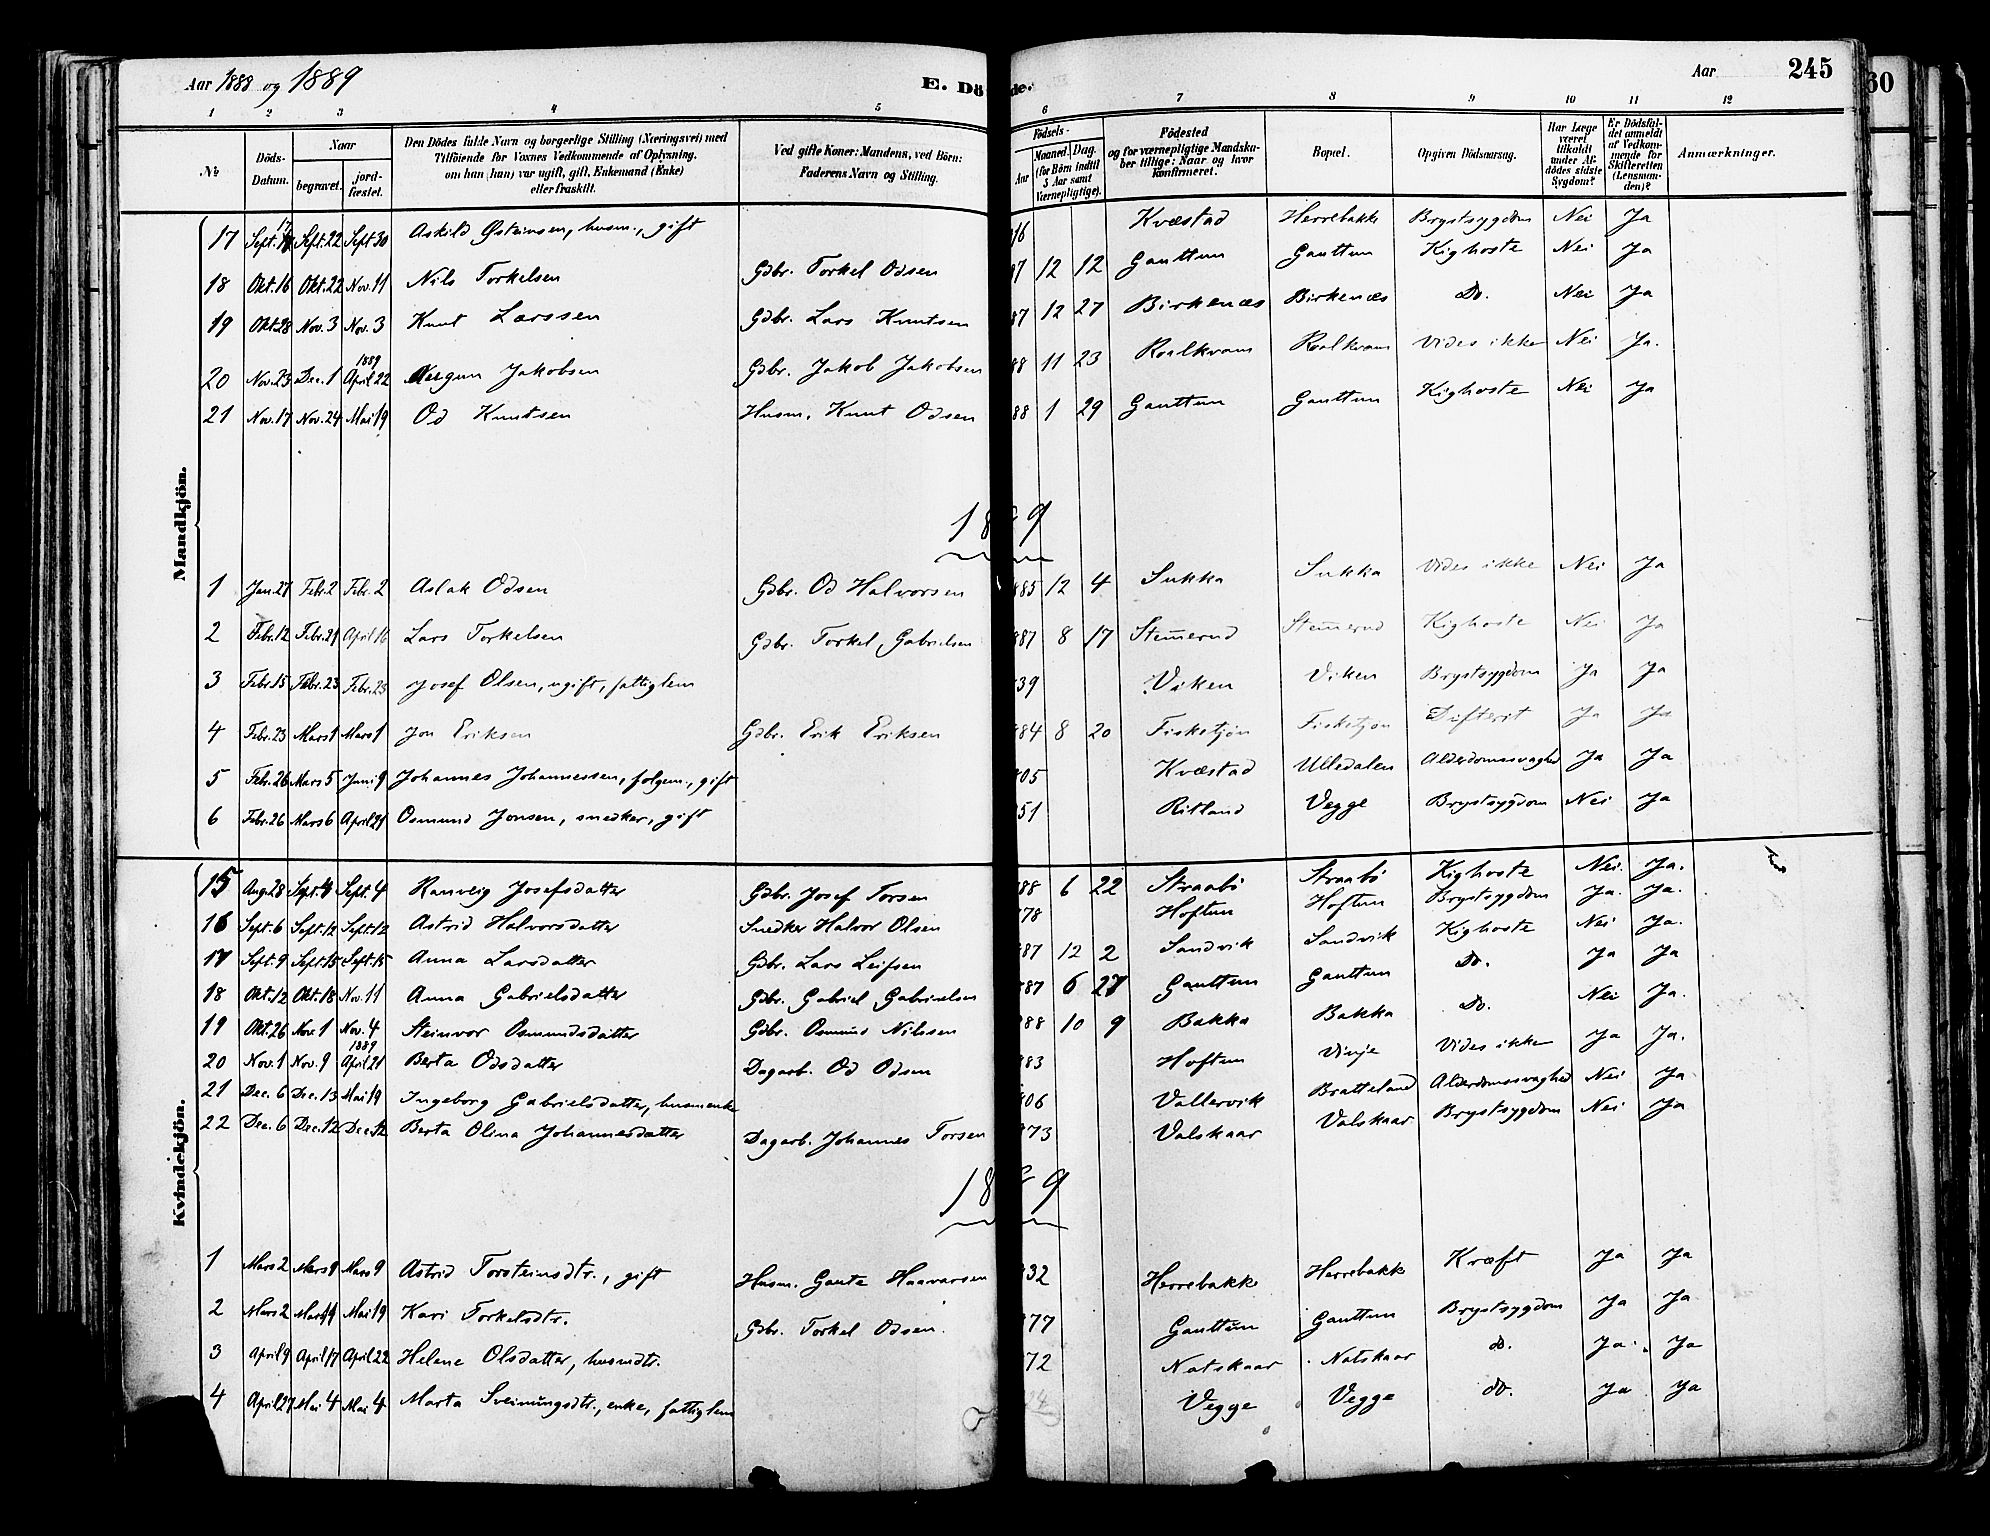 Aar 1888 og 1889
E. Dö
de.
Aar
245
60
1 2 3 4 5 6 7 8 9 10 11 12
No
Döds-Datum.
Naar
begravet.
jord-fæstet.
Den Dödes fulde Navn og borgerlige Stilling (Næringsvei) med
Tilföiende for Voxnes Vedkommende af Oplysning.
om han (hun) var ugift, gift, Enkemand (Enke)
eller fraskilt.
Ved gifte Koner: Mandens, ved Börn:
Faderens Navn og Stilling.
Födsels-
Aar
Maaned. Dag.
(for Börn indtil
5 Aar samt
Værnepligtige).
Födested
og for værnepligtige Mandska-
ber tillige: Naar og hvor
Konfirmeret.
Bopæl.
Opgiven Dödsaarsag.
Har Læge
været
tilkaldt
under Af-
dödes sidste
Sygdom?
Er Dödsfal-
det anmeldt
af Vedkom-
mende for
Skifteretten
(Lensman-
den)?
Anmærkninger.
Mandkjön.
17 Sept. 17 Sept. 22 Sept 30 Askild Østeinsen, husm., gift 16 Kvæstad Herrebakk Brystsygdom Nei Ja
18 Okt. 16 Okt. 22 Nov. 11 Nils Torkelsen Gdbr. Torkel Odsen 87 12 12 Gauttun Gauttun Kighoste Nei Ja
19 Okt. 28 Nov. 3 Nov. 3 Knut Larssen Gdbr. Lars Knutsen 87 12 27 Birkenæs Birkenæs Do. Nei Ja
20 Nov. 23 Dec. 1 1889 April 22 Aasgun Jakobsen Gdbr. Jakob Jakobsen 88 11 23 Roalkvam Roalkvam Vides ikke Nei Ja.
21 Nov. 17 Nov. 24 Mai 19 Od Knutsen Husm. Knut Odsen 88 1 29 Gauttun Gauttun Kighoste Nei Ja
1889
1 Jan. 27 Febr. 2 Febr. 2 Aslak Odsen Gdbr. Od Halvorsen 885 12 4 Sukka Sukka Vides ikke Nei Ja
2 Febr. 12 Febr. 21 April 16 Lars Torkelsen Gdbr. Torkel Gabrielsen 887 8 17 Stemerud Stemerud Kighoste Nei Ja
3 Febr. 15 Febr. 23 Febr. 23 Josef Olsen, ugift, fattiglem 39 Viken Viken Brystsygdom Ja Ja
4 Febr. 23 Mars 1 Mars 1 Jon Eriksen Gdbr. Erik Eriksen 84 8 20 Fisketjön Fisketjön Difterit Ja Ja
5 Febr. 26 Mars 5 Juni 9 Johannes Johannessen, folgem., gift 05 Kvæstad Ulledalen Alderdomssvaghed Ja Ja
6 Febr. 26 Mars 6 April 21 Osmund Jonsen, snedker, gift 51 Ritland Vegge Brystsygdom Nei Ja
Kvindekjön.
15 Aug. 28 Sept. 4 Sept. 4 Ranveig Josefsdatter Gdbr. Josef Torsen 88 6 22 Straabö Straabö Kighoste Nei. Ja.
16 Sept. 6 Sept. 12 Sept. 12 Astrid Halvorsdatter Snedker Halvor Olsen 78 Hoftun Hoftun Brystsygdom Ja. Ja.
17 Sept. 9 Sept. 15 Sept. 15 Anna Larsdatter Gdbr. Lars Leifsen 87 12 2 Sandvik Sandvik Kighoste Nei Ja.
18 Okt. 12 Okt. 18 Nov. 11 Anna Gabrielsdatter Gdbr. Gabriel Gabrielsen 87 6 27 Gauttun Gauttun Do. Ja Ja
19 Okt. 26 Nov. 1 Nov. 4 Steinvor Osmundsdatter Gdbr. Osmund Nilssen 88 10 9 Bakka Bakka Do. Nei Ja.
20 Nov. 1 Nov. 9 1889 April 21 Berta Odsdatter Dagarb. Od Odsen 83 Hoftun Vinje Vides ikke Ja Ja.
21 Dec. 6 Dec. 13 Mai 19 Ingeborg Gabrielsdatter, husmenke 06 Vallervik Bratteland Alderdomssvaghed Nei Ja
22 Dec. 6 Dec. 12 Dec. 12 Berta Olina Johannesdatter Dagarb. Johannes Torsen 73 Valskaar Valskaar Brystsygdom Nei Ja
1889
1 Mars 2 Mars 9 Mars 9 Astrid Torsteinsdtr., gift Husm. Gaute Haavarsen 32 Herrebakke Herrebakk Kræft Ja Ja
2 Mars 2 Mars 9 Mai 19 Kari Torkelsdtr. Gdbr. Torkel Odsen. 77 Gauttun Gauttun Brystsygdom Ja Ja
3 April 9 April 17 April 22 Helene Olsdatter, husmdtr. 72 Natskaar Natskaar do. Ja Ja
4 April 27 Mai 4 Mai 4 Marta Sveinungsdtr., enke, fattiglem 24 Vegge Vegge do. Ja Ja